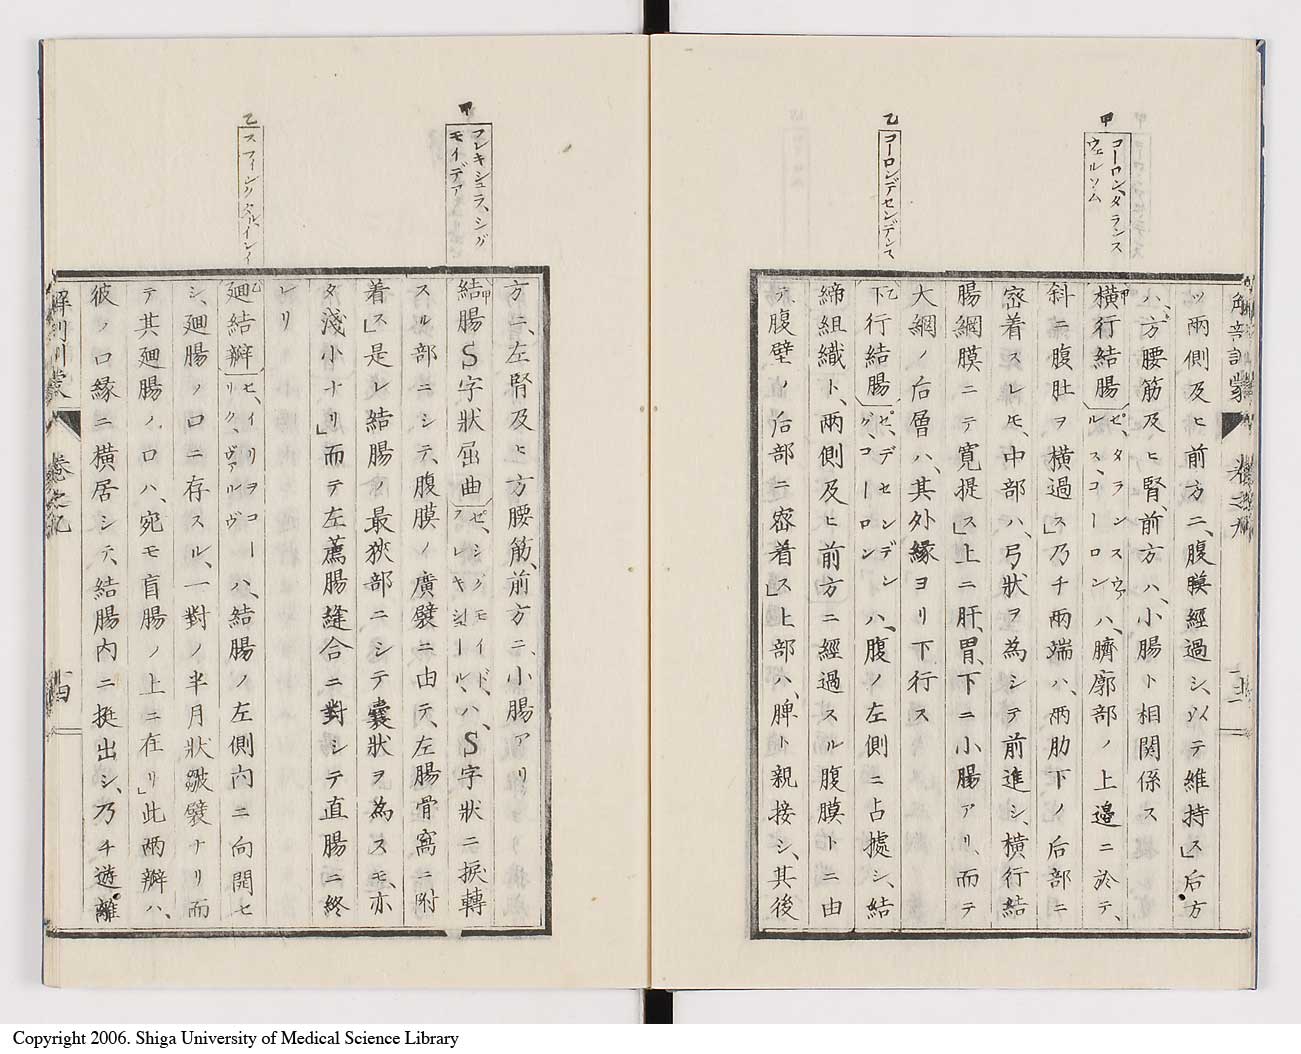 甲
コーロン、タランス
ウェルソム
乙
コーロンデセンデンス
解剖訓蒙
巻之九
十三
ツ両側及ヒ前方ニ、腹膜経過シ、以テ維持ス」后方
ハ、方腰筋及ヒ腎、前方ハ、小腸ト相関係ス
甲横行結腸 ゼ、タランスウァ
ルス、コーロン ハ、臍廓部ノ上邉ニ於テ、
斜ニ腹肚ヲ横過ス」乃チ両端ハ、両肋下ノ后部ニ
密着スレモ、中部ハ、弓状ヲ為シテ前進シ、横行結
腸網膜ニテ寛提ス」上ニ肝、胃、下ニ小腸アリ、而テ
大網ノ后層ハ、其外縁ヨリ下行ス
乙下行結腸 ゼ、デセンデン
グ、コーロン ハ、腹ノ左側ニ占據シ、結
締組織ト、両側及ヒ前方ニ経過スル腹膜トニ由
テ腹壁ノ后部ニ密着ス」上部ハ、脾ト親接シ、其後
甲
フレキシュラ、シグ
モイデア
乙
スフィンクトル、イレイ
方ニ、左腎及ヒ方腰筋、前方ニ、小腸アリ
甲結腸S字状屈曲 ゼ、シグモイド、
フレキシュール、 ハ、S字状ニ捩轉
スル部ニシテ、腹膜ノ廣襞ニ由テ、左腸骨窩ニ附
着ス」是レ結腸ノ最狭部ニシテ嚢状ヲ為スモ、亦
タ淺小ナリ」而テ左薦腸縫合ニ對シテ直腸ニ終
レリ
乙廻結瓣 ゼ、イリヲコー
リク、ヴァルヴ ハ、結腸ノ左側内ニ向開セ
シ、廻腸ノ口ニ存スル、一對ノ半月状皺襞ナリ而
テ其廻腸ノ口ハ、宛モ盲腸ノ上ニ在リ」此両瓣ハ、
彼ノ口縁ニ横居シテ、結腸内ニ挺出シ、乃チ遊離
解剖訓蒙
巻之九
十四
Copyright 2006. Shiga University of Medical Science Library